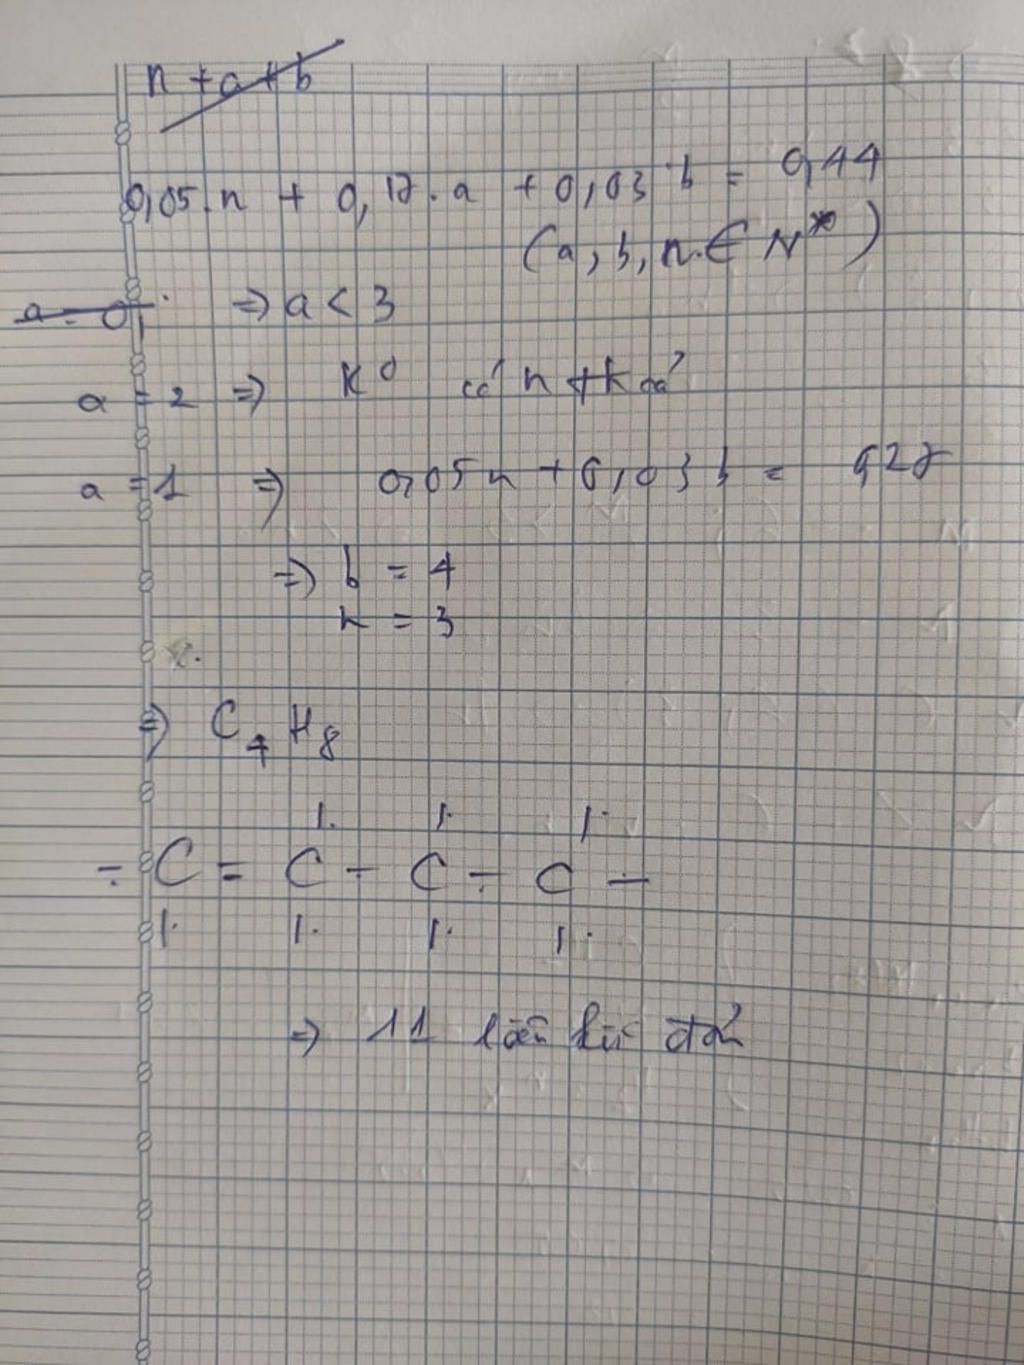 n + a + b
0,05.n + 0,17.a + 0,03 b = 0,44
(a, b, n ∈ N*)
a = 0, ⇒ a < 3
a = 2 ⇒ K⁰ có n t/k đả
a = 1 ⇒ 0,05n + 0,03 b = 0,27
⇒ b = 4
n = 3
⇒ C₄H₈
- C = C - C - C -
⇒ 11 liên kết đơn